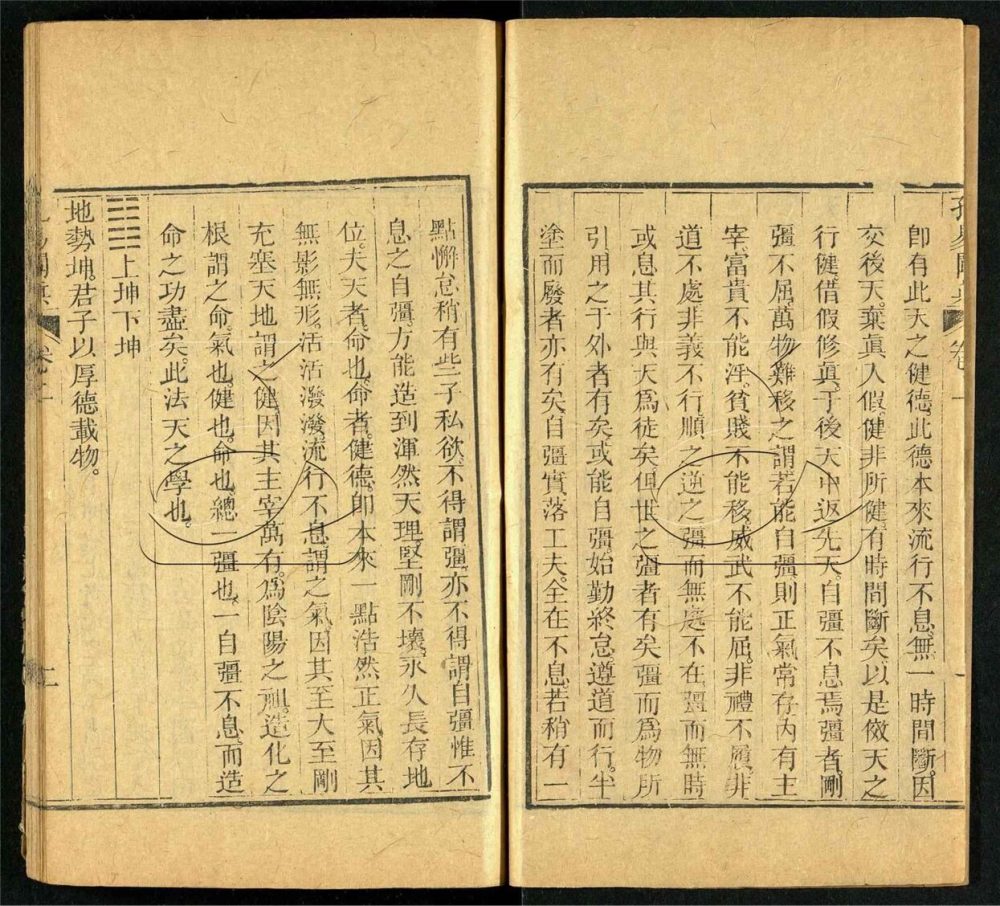 卽有此天之健德。此德本來流行不息。無一時間斷。因
交後天。棄眞入假。健非所健。有時間斷矣。以是傚天之
行健。借假修眞。于後天中返先天。自彊不息焉。彊者。剛
彊不屈。萬物難移之謂。若能自彊。則正氣常存。內有主
宰。富貴不能淫。貧賤不能移。威武不能屈。非禮不履。非
道不處。非義不行。順之逆之。彊而無處不在。彊而無時
或息。其行與天爲徒矣。但世之彊者有矣。彊而爲物所
引用之于外者有矣。或能自彊。始勤終怠。遵道而行。半
塗而廢者亦有矣。自彊實落工夫。全在不息。若稍有一
點懈怠。稍有些子私欲。不得謂彊。亦不得謂自彊。惟不
息之自彊。方能造到渾然天理。堅剛不壞。永久長存地
位。夫天者。命也。命者。健德。卽本來一點浩然正氣。因其
無影無形。活活潑潑。流行不息。謂之氣。因其至大至剛
充塞天地。謂之健。因其主宰萬有。爲陰陽之祖。造化之
根。謂之命。氣也。健也。命也。總一彊也。一自彊不息。而造
命之功盡矣。此法天之學也。
䷁上坤下坤
地勢坤。君子以厚德載物。
卷上